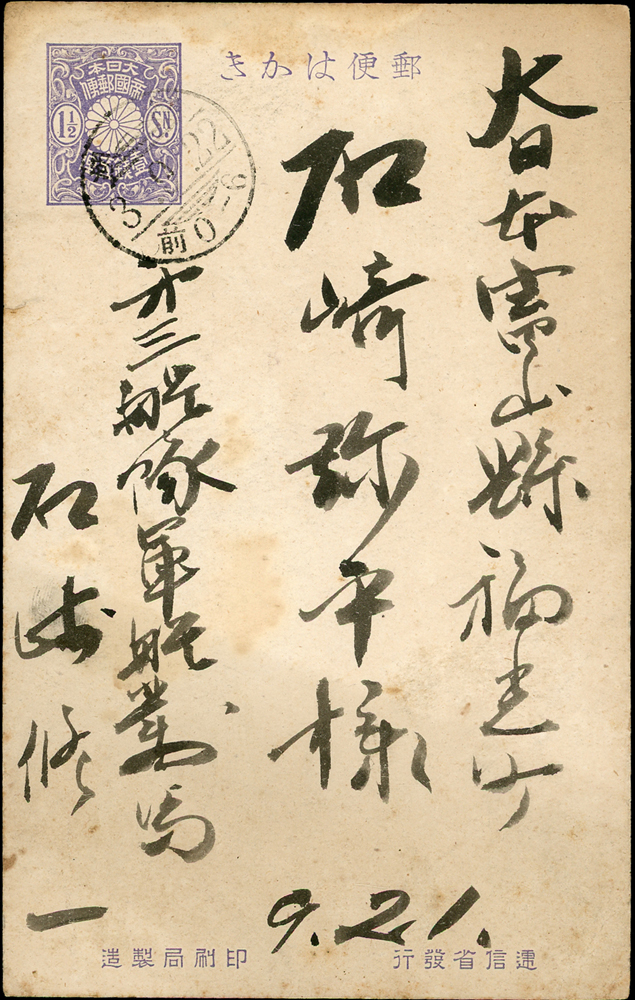 郵便はかき
大日本
帝國郵便
1½ SN
3 9 22
前 0-6
大日本富山縣福光町
石崎弥平様
第三艦隊軍艦對馬
石崎修一
9.21.
遞信省發行
印刷局製造